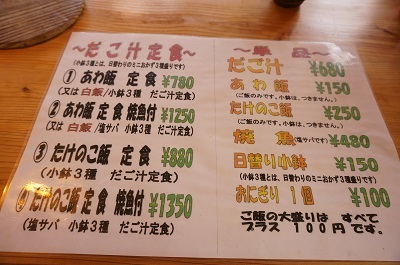 ～だご汁定食～
(小鉢3種とは、日替わりのミニおかず3種盛りです)
① あわ飯 定食 ¥780
(又は 白飯/小鉢3種 だご汁定食)
② あわ飯 定食 焼魚付 ¥1250
(又は 白飯/塩サバ 小鉢3種 だご汁定食)
③ たけのこ飯 定食 ¥880
(小鉢3種 だご汁定食)
④ たけのこ飯 定食 焼魚付 ¥1350
(塩サバ 小鉢3種 だご汁定食)
～単品～
だご汁 ¥680
あわ飯 ¥150
(ご飯のみです。小鉢は、つきません。)
たけのこ飯 ¥250
(ご飯のみです。小鉢は、つきません。)
焼魚(塩サバです) ¥480
日替り小鉢 ¥150
(小鉢3種とは、日替わりのミニおかず3種盛りです)
おにぎり 1個 ¥100
ご飯の大盛りは すべて
プラス 100円です。